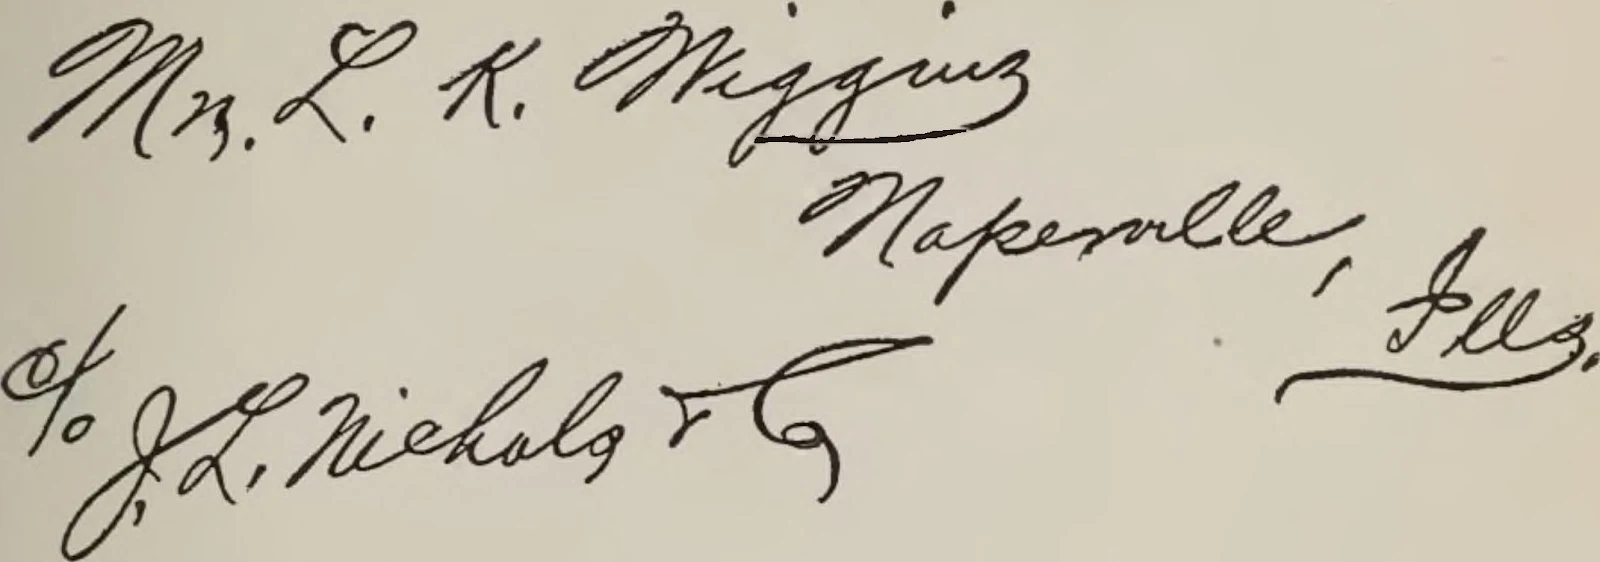 Mrs. L. K. Wiggins
Naperville, Ills.
c/o J. L. Nichols & Co